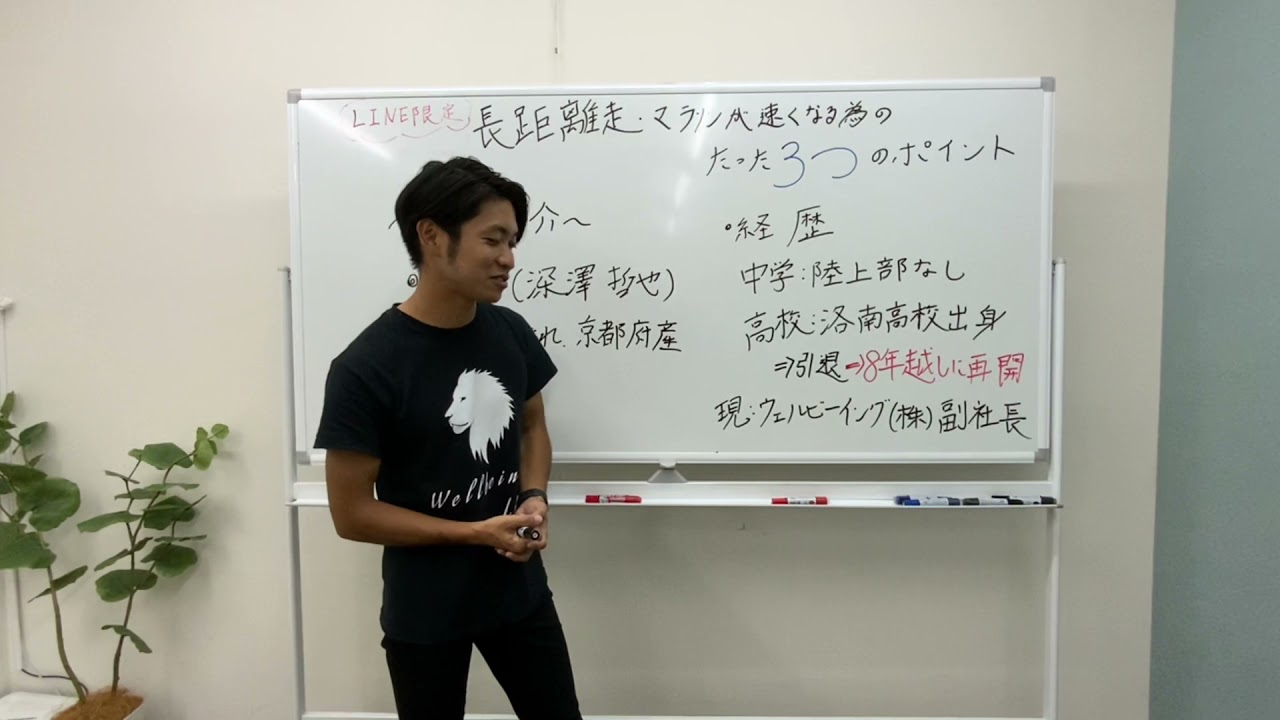 LINE限定
長距離走・マラソンが速くなる為の
たった3つのポイント
介〜
(深澤 哲也)
れ、京都府産
・経歴
中学:陸上部なし
高校:洛南高校出身
⇒引退⇒8年越しに再開
現:ウェルビーイング(株)副社長
Wellbein